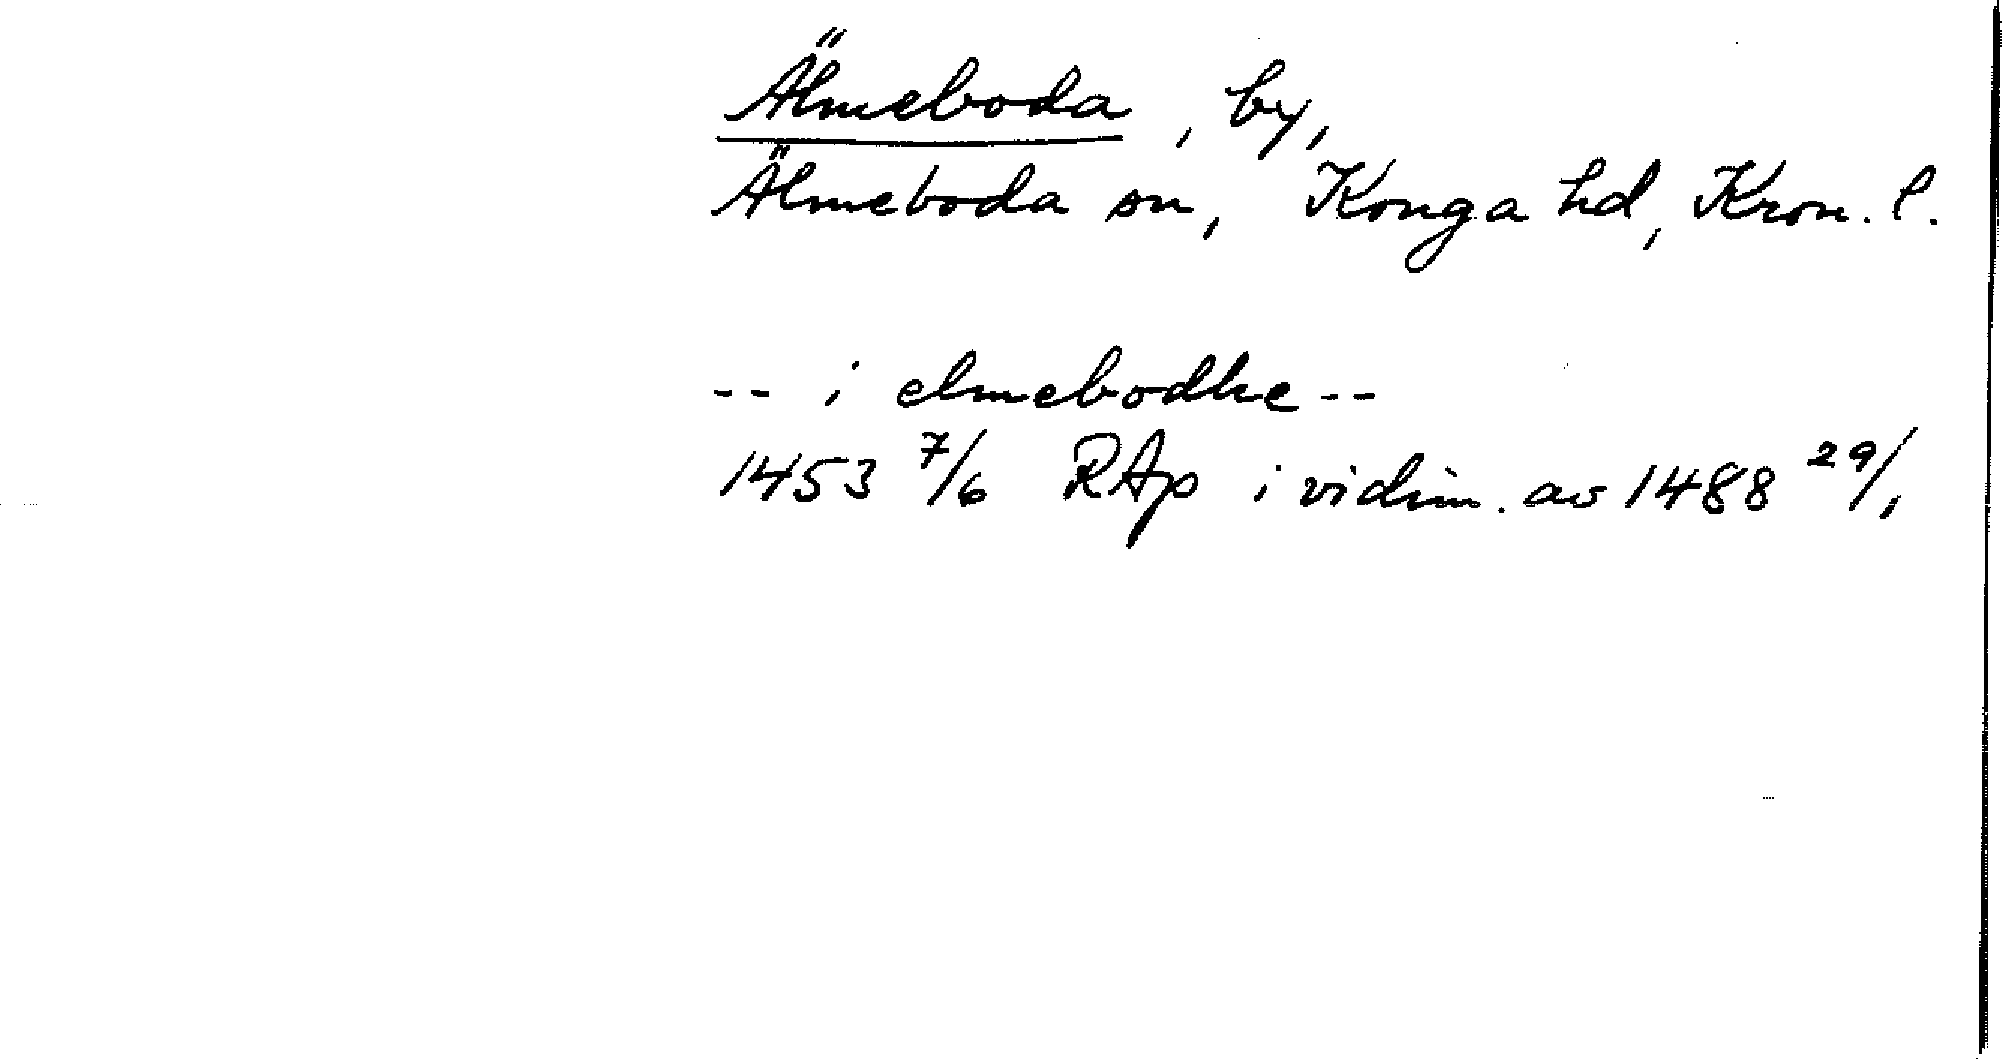 Älmeboda, by,
Älmeboda sn, Konga hd, Kron. l.
-- i elmebodhe --
1453 7/6 RAp i vidim. av 1488 29/1